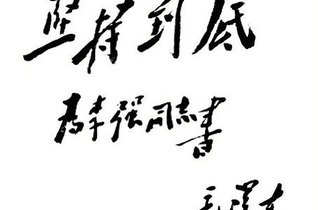 坚持到底
为李强同志书
毛泽东